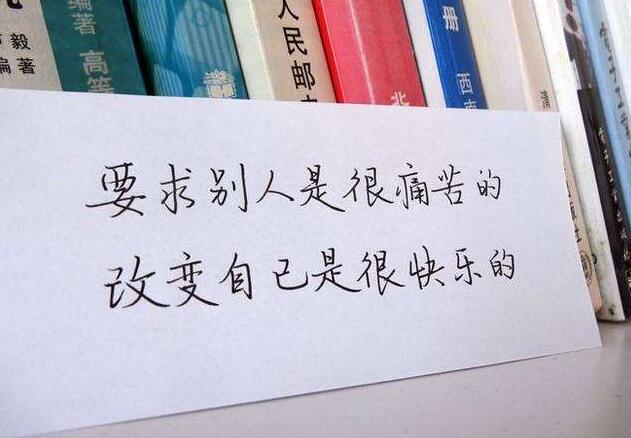 要求别人是很痛苦的
改变自己是很快乐的
毅
编著
编著
高等
人民邮
北
册
西南
清